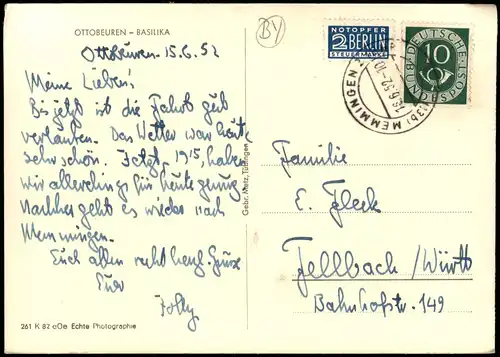 OTTOBEUREN – BASILIKA
Ottobeuren 15.6.52
Meine Lieben!
Bis jetzt ist die Fahrt gut
verlaufen. Das Wetter war heute
sehr schön. Jetzt, 1915, haben
wir allerdings für heute genug.
Nachher geht es wieder nach
Memmingen.
Euch allen recht herzl. Grüsse
Euer
261 K 82 Echte Photographie
Gebr. Metz, Tübingen
BY
NOTOPFER
2 BERLIN
STEUERMARKE
DEUTSCHE BUNDESPOST
10
(13b) MEMMINGEN 2
16.6.52-10
Familie
E. Fleck
Fellbach / Württ
Bahnhofstr. 149